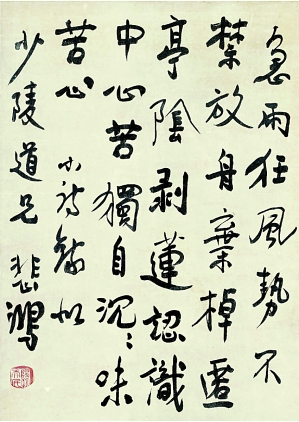 急雨狂風勢不
禁放舟棄棹匿
亭陰剥蓮認識
中心苦獨自沉〻味
苦心 小詩錄似
少陵道兄 悲鴻